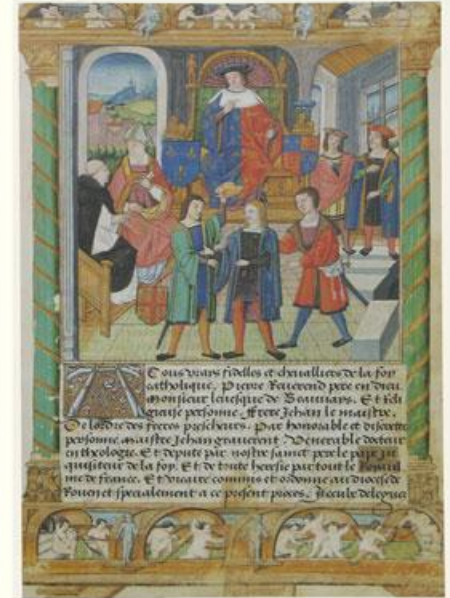 A Tous vrais fidelles et chevalliers de la foy
catholique. Pierre Reverend pere en dieu
monsieur levesque de Beauvais. Et Reli
gieuse personne ffrere Jehan le maistre.
De lordre des freres prescheurs. Par honorable et discrete
personne maistre Jehan graverent Venerable docteur
en theologie. Et depute par nostre sainct pere le pape in
quisiteur de la foy. Et de toute heresie par tout le Royaul
me de france. Et vicaire commis et ordonne au diocese de
Rouen et specialement a ce present proces.